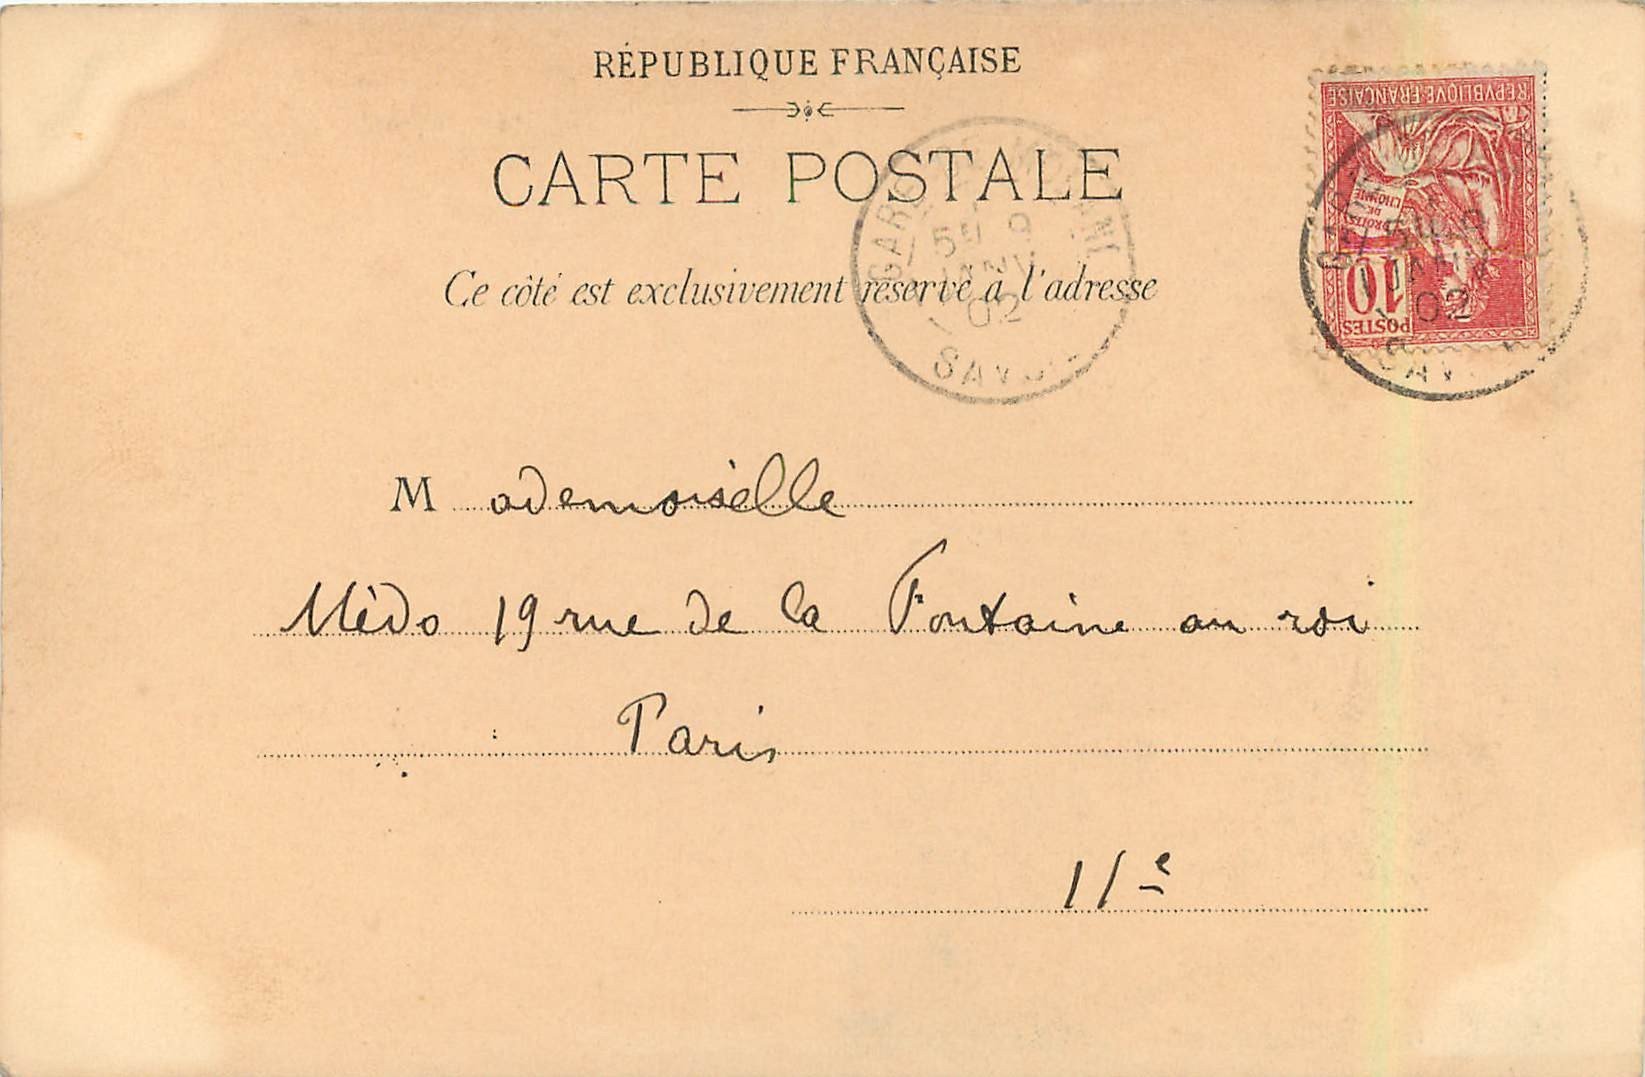 RÉPUBLIQUE FRANÇAISE
CARTE POSTALE
Ce côté est exclusivement réservé à l'adresse
REPVBLIQVE FRANÇAISE
DROITS
DE
L'HOMME
10
POSTES
GARE
5E 9
JANV
02
SAV
GARE
5E 9
JANV
02
SAV
Mademoiselle
Médo 19 rue de la Fontaine au roi
Paris
11e